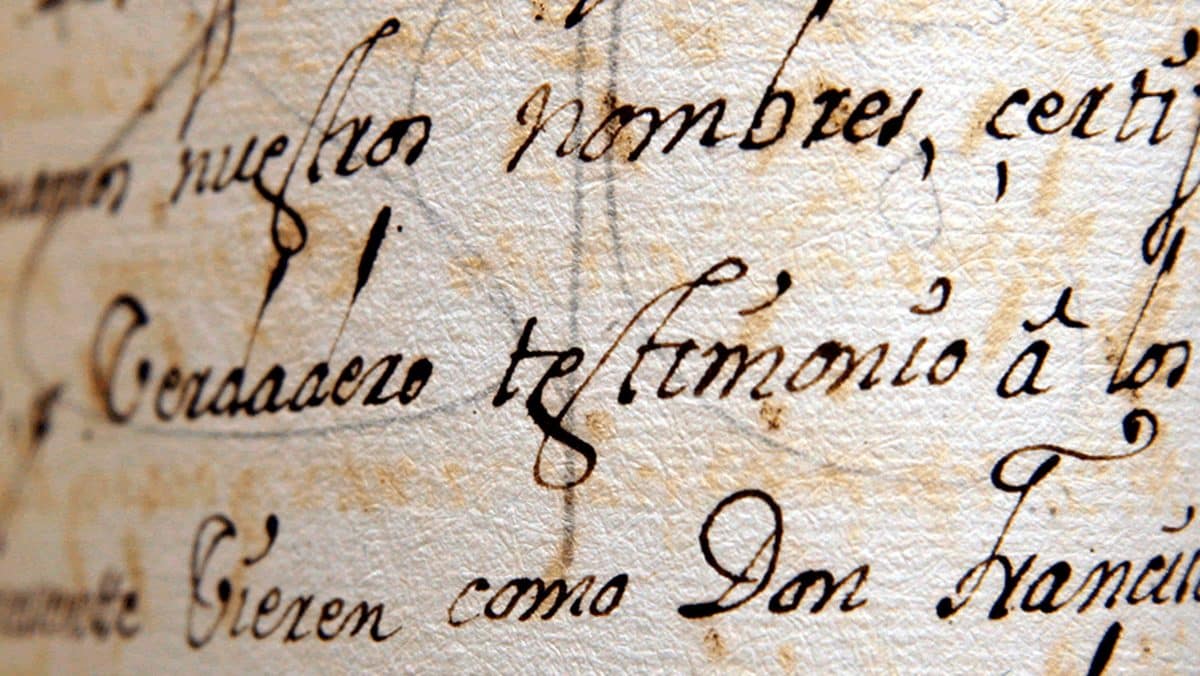 nuestros nombres, çerti
Verdadero testimonio â los
Vieren como Don Francis